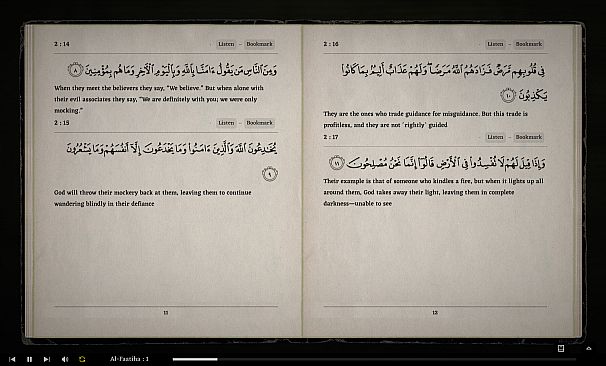 2 : 14
Listen - Bookmark
وَمِنَ النَّاسِ مَن يَقُولُ ءَامَنَّا بِاللَّهِ وَبِالْيَوْمِ الْآخِرِ وَمَا هُم بِمُؤْمِنِينَ ٨
When they meet the believers they say, "We believe." But when alone with
their evil associates they say, "We are definitely with you; we were only
mocking."
2 : 15
Listen - Bookmark
يُخَادِعُونَ اللَّهَ وَالَّذِينَ ءَامَنُوا وَمَا يَخْدَعُونَ إِلَّا أَنفُسَهُمْ وَمَا يَشْعُرُونَ
٩
God will throw their mockery back at them, leaving them to continue
wandering blindly in their defiance
11
2 : 16
Listen - Bookmark
فِي قُلُوبِهِم مَّرَضٌ فَزَادَهُمُ اللَّهُ مَرَضًا وَلَهُمْ عَذَابٌ أَلِيمٌ بِمَا كَانُوا
يَكْذِبُونَ ١٠
They are the ones who trade guidance for misguidance. But this trade is
profitless, and they are not ˹rightly˺ guided
2 : 17
Listen - Bookmark
وَإِذَا قِيلَ لَهُمْ لَا تُفْسِدُوا فِي الْأَرْضِ قَالُوا إِنَّمَا نَحْنُ مُصْلِحُونَ ١١
Their example is that of someone who kindles a fire, but when it lights up all
around them, God takes away their light, leaving them in complete
darkness—unable to see
12
Al-Faatiha : 1